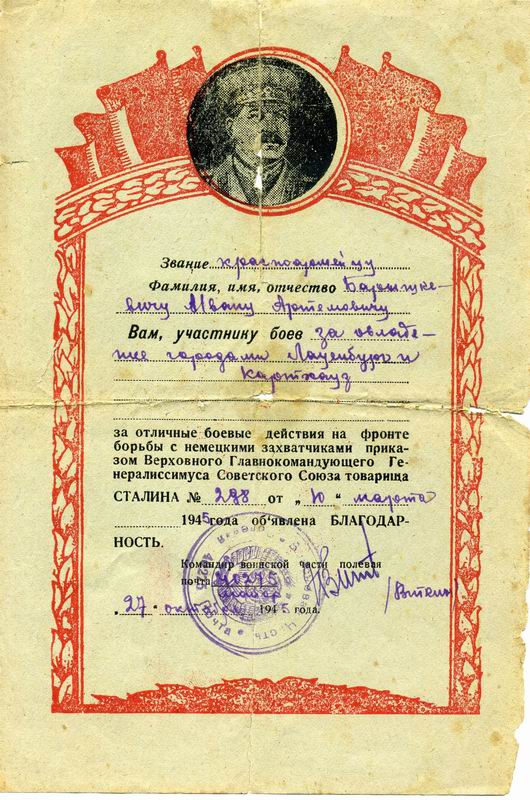 Звание красноармейцу
Фамилия, имя, отчество Барышке-
вичу Ивану Артемовичу
Вам, участнику боев за овладе-
ние городами Лауенбург и
Картхауз
за отличные боевые действия на фронте
борьбы с немецкими захватчиками прика-
зом Верховного Главнокомандующего Ге-
нералиссимуса Советского Союза товарища
СТАЛИНА № 298 от „10" марта
1945 года об'явлена БЛАГОДАР-
НОСТЬ.
Командир воинской части полевая
почта 40295
„27" октября 1945 года.